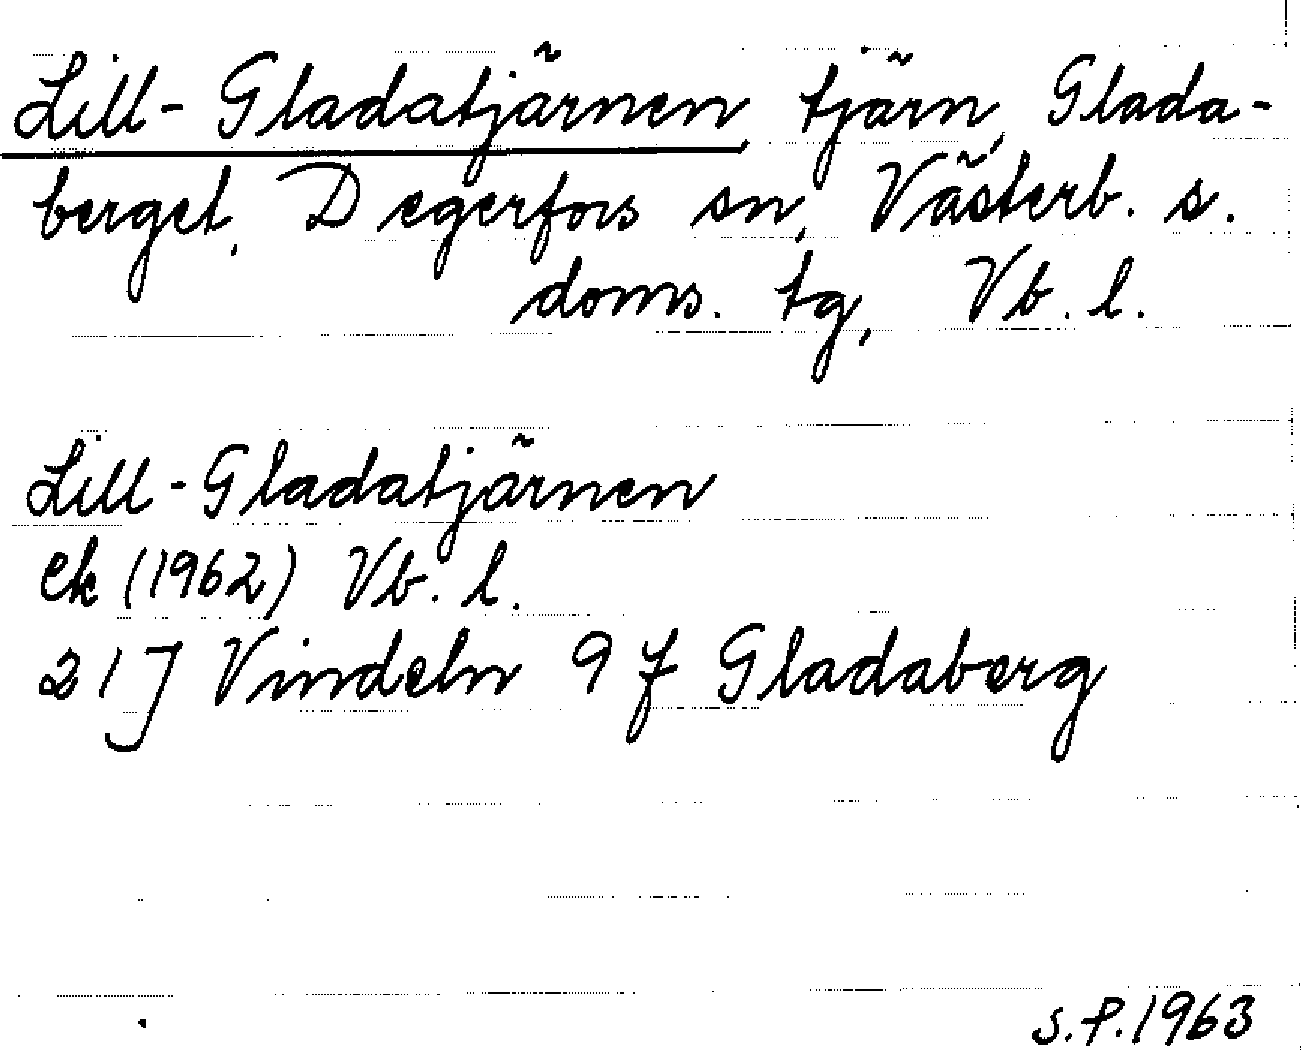 Lill-Gladatjärnen, tjärn, Glada-
berget, Degerfors sn, Västerb. s.
doms. tg, Vb. l.
Lill-Gladatjärnen
ek (1962) Vb. l.
21J Vindeln 9 f Gladaberg
S.P.1963